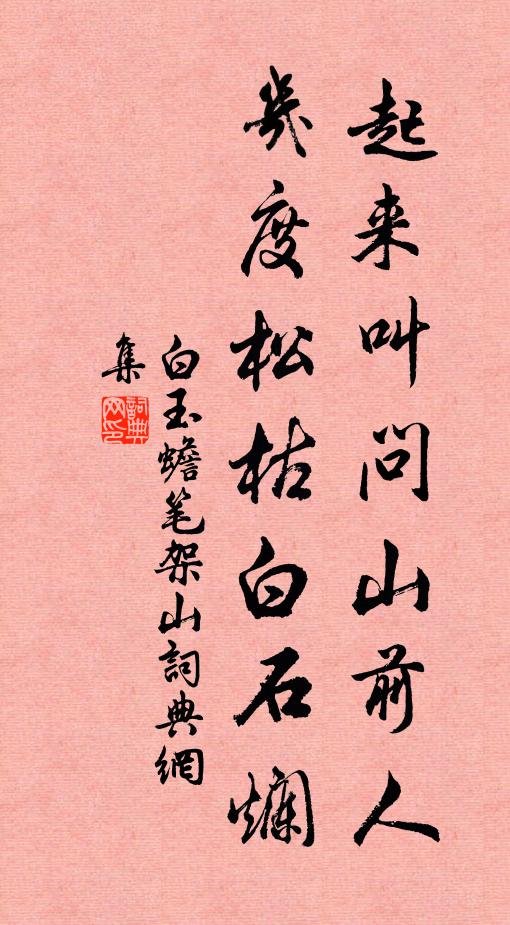 起来叫问山前人
幾度松枯白石爛
白玉蟾笔架山詞典網
集
詞典网印